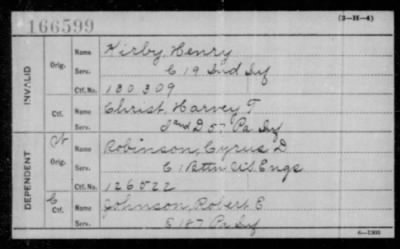 166599
(3-H-4)
INVALID
Orig.
Name Kirby, Henry
Serv. C 19 Ind Inf
Ctf. No. 130309
Ctf.
Name Christ, Harvey T
Serv. D 57 Pa Inf
DEPENDENT
Orig.
Name Robinson, Cyrus D
Serv. C 1 Battn Engs
Ctf. No. 126522
C
Ctf.
Name Johnson, Robert E
Serv. 187 Pa Inf